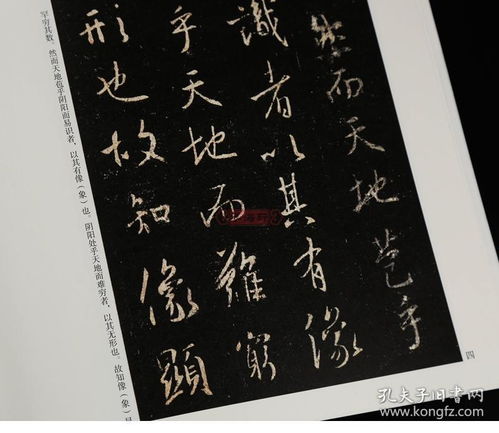 然而天地苞乎
識者以其有像
乎天地而難窮
形也故知像顯
罕穷其数。然而天地苞乎阴阳而易识者，以其有像（象）也。阴阳处乎天地而难穷者，以其无形也。故知像（象）显
四
孔夫子旧书网
www.kongfz.com